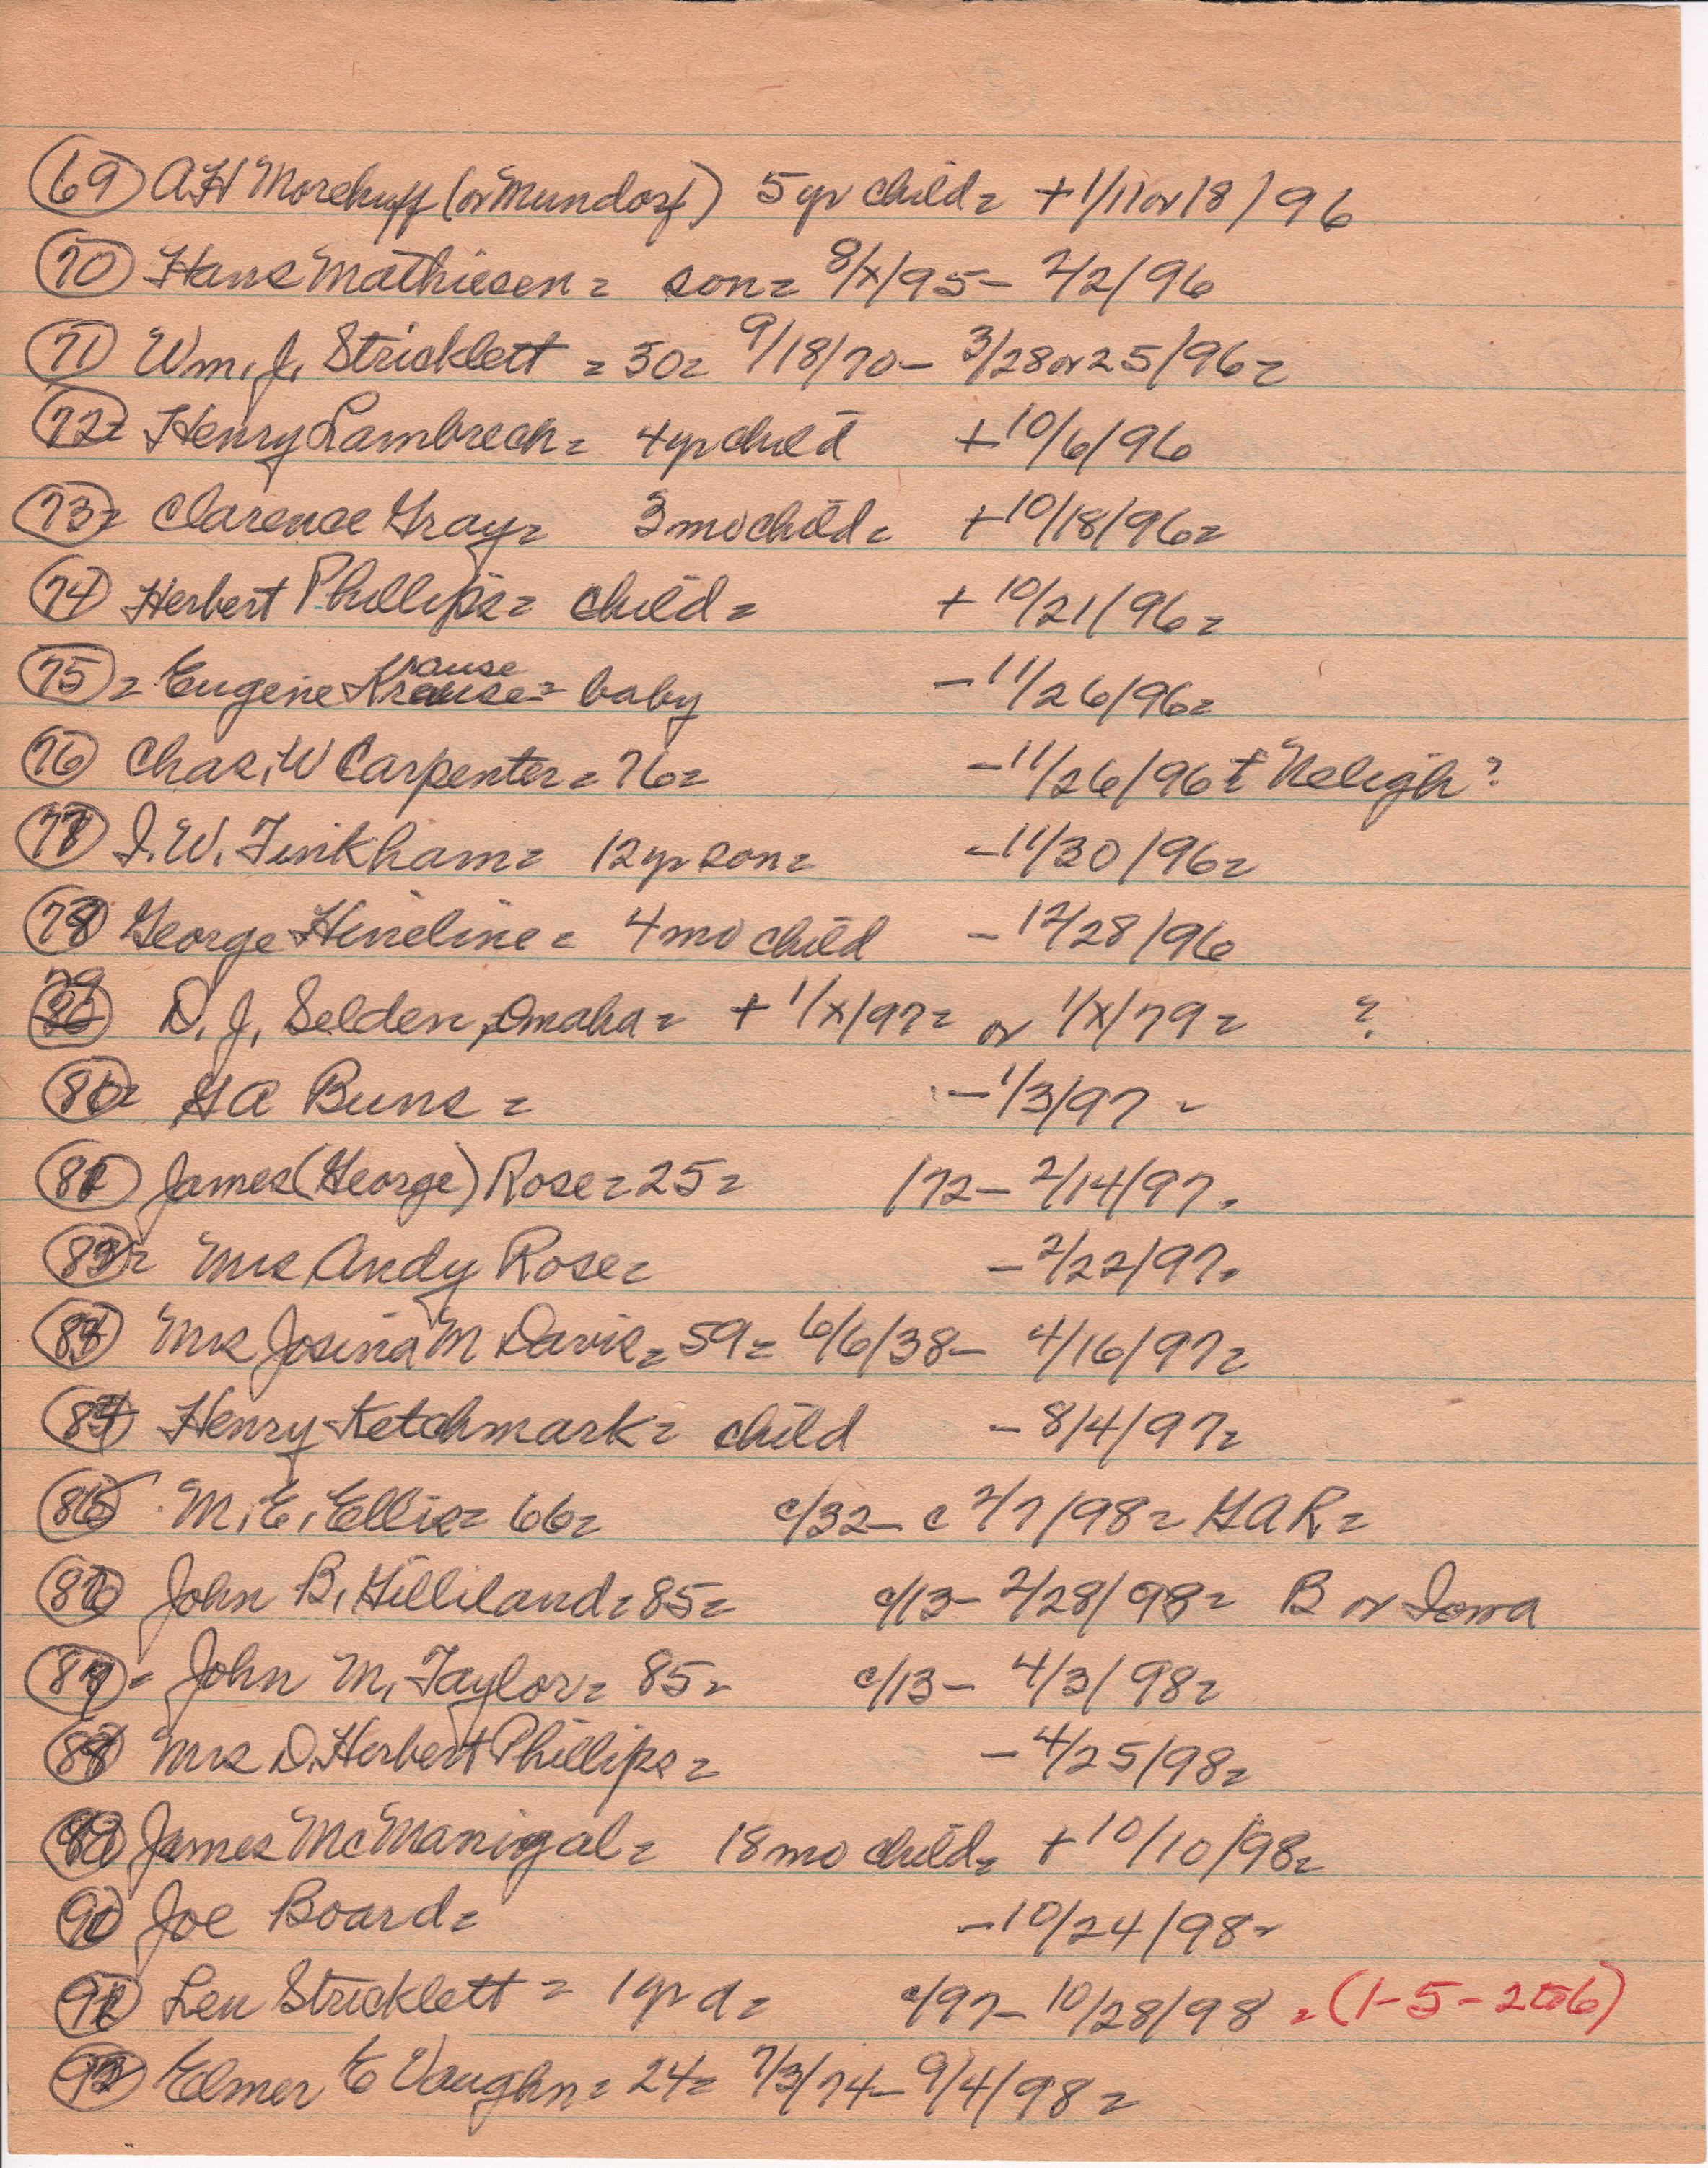 69 A.H Morehuff (or Mundorf) 5 yr child = + 1/11 or 18/96
70 Hans Mathiesen = son = 8/x/95 - 2/2/96
71 Wm. J. Stricklett = 30 = 9/18/70 - 3/28 or 25/96 =
72 = Henry Lambrech = 4 yr child + 10/6/96
73 = Clarence Gray = 3 mo child = + 10/18/96 =
74 Herbert Phillips = child = + 10/21/96 =
75 = Eugene Krause rause = baby - 11/26/96 =
76 Chas. W Carpenter = 76 = - 11/26/96 + Neligh?
77 I. W. Tinkham = 12 yr son = - 11/30/96 =
78 George Hineline = 4 mo child - 12/28/96
79 D. J. Selden, Omaha = + 1/x/97 = or 1/x/79 = ?
80 = G A Buns = - 1/3/97 -
81 James (George) Rose = 25 = /72 - 2/14/97 .
82 = Mrs Andy Rose = - 2/22/97 .
83 Mrs Josina M Davis = 59 = 6/6/38 - 4/16/97 =
84 Henry Ketchmark = child - 8/4/97 =
85 M. E. Ellis = 66 = c/32 - c 2/7/98 = G A R =
86 John B. Gilliland = 85 = c/13 - 2/28/98 = B or Iowa
87 = John M. Taylor = 85 = c/13 - 4/3/98 =
88 Mrs D. Herbert Phillips = - 4/25/98 =
89 James McManigal = 18 mo child = + 10/10/98 =
90 Joe Board = - 10/24/98 =
91 Len Stricklett = 1 yr d = c/97 - 10/28/98 = (1-5-2 to 6)
92 Elmer E Vaughn = 24 = 7/3/74 - 9/4/98 =